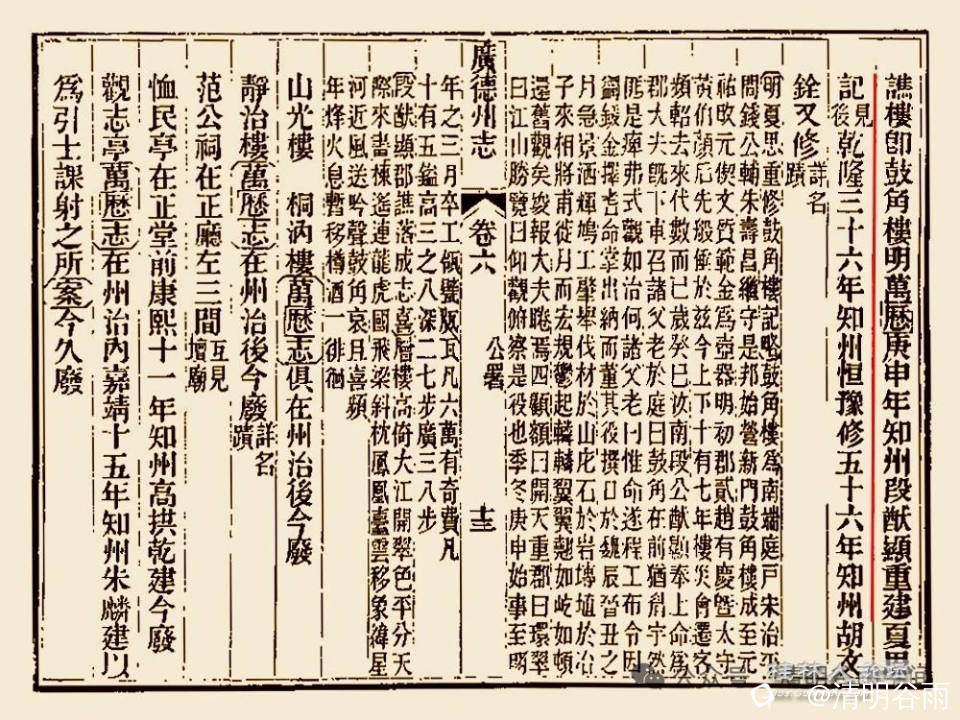 譙樓即鼓角樓明萬曆庚申年知州段猷顯重建夏思
記見後乾隆三十六年知州恒豫修五十六年知州胡文
銓又修詳名蹟
明夏思重修鼓角樓記略鼓角樓為南端庭戸宋治平
間錢公輔朱壽昌繼守是邦始營新門鼓角樓成至元
祐改元偰文質範金為壺器明初郡貳趙有慶曁太守
黃伯顏后先般倕於兹今上下十有七年樓災會遷客
頻軺去來代數而已歲癸巳汝南段公猷顯奉上命為
郡大夫旣下車召諸父老於庭曰鼓角在前猶宇然
匪是痺弗式觀如治何諸父老曰惟命遂程工布令因
錢金擇耆命掌出納而董其役撰日於魏辰晉丑之
月急景酒輝鳩工肇舉伐材於山庀石於岩塼埴於冶
子來相將甫徙月而宏規鬱起轔轔翼翼翹如屹如頓
還舊觀矣竣報大夫睠焉四顧額曰開天重郡曰環翠
曰江山勝覽曰仰觀俯察是役也季冬庚申始事至明
廣德州志 卷六 公署 十三
年之三月卒工瓴甓版瓦凡六萬有奇費凡
十有五鎰高三之八深二七步廣三八步
段猷顯郡譙落成志喜層樓高倚大江開翠色平分天
際來畫棟遙連龍虎國飛梁斜枕鳳凰臺雲移象緯星
河近風送吟聲鼓角哀且喜頻
年烽火息暫移樽酒一徘徊
山光樓 桐汭樓萬曆志俱在州治後今廢
靜治樓萬曆志在州治後今廢詳名蹟
范公祠在正廳左三間互見壇廟
恤民亭在正堂前康熙十一年知州高拱乾建今廢
觀志亭萬曆志在州治內嘉靖十五年知州朱麟建以
為引士課射之所案今久廢
@清明谷雨